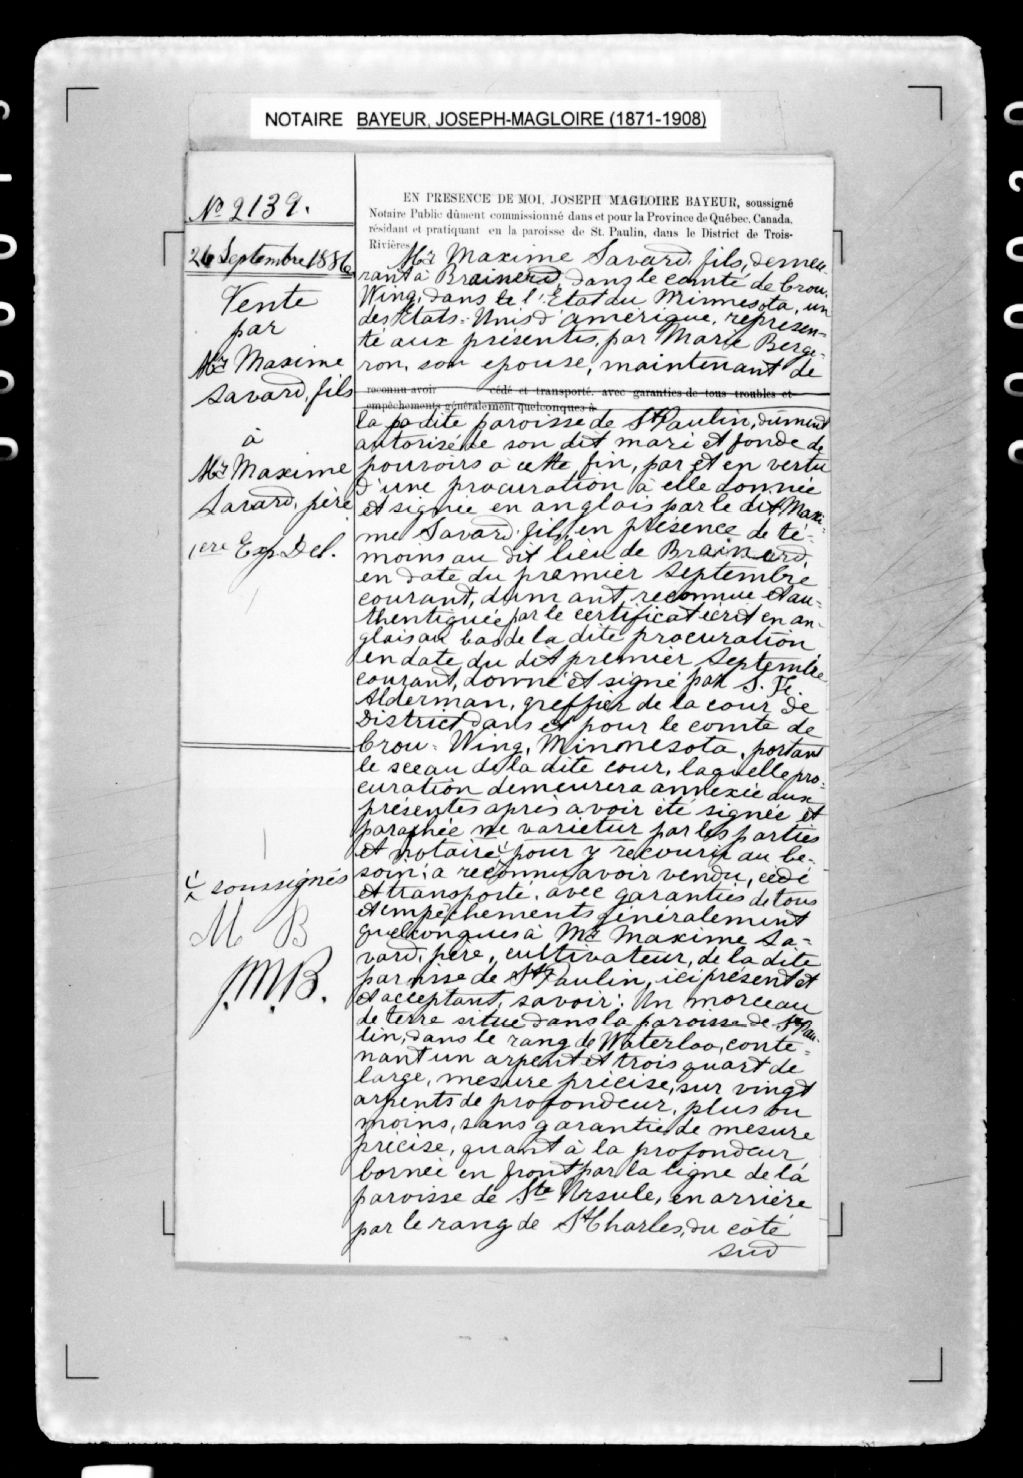 NOTAIRE BAYEUR, JOSEPH-MAGLOIRE (1871-1908)
No 2139.
26 Septembre 1886
Vente
par
Mr Maxime
Savard, fils
à
Mr Maxime
Savard, père
1ère Exp. Del.
× soussignés
M B
J.M.B.
EN PRESENCE DE MOI, JOSEPH MAGLOIRE BAYEUR, soussigné
Notaire Public dûment commissionné dans et pour la Province de Québec, Canada,
résidant et pratiquant en la paroisse de St. Paulin, dans le District de Trois-
Rivières
Mr Maxime Savard, fils, demeu-
rant à Brainerd, dans le comté de Crow-
Wing, dans le l'Etat du Minnesota, un
des Etats-Unis d'amérique, représen-
té aux présentes, par Marie Berge-
ron, son epouse, maintenant de
reconnu avoir cédé et transporté, avec garanties de tous troubles et
empêchements généralement quelconques à
la pa dite paroisse de St Paulin, dûment
autorisée de son dit mari et fondé de
pouvoirs à cette fin, par et en vertu
d'une procuration à elle donnée
et signée en anglais par le dit Maxi-
me Savard, fils, en présence de té-
moins au dit lieu de Brainerd,
en date du premier septembre
courant, dûmant, reconnue et au-
thentiquée par le certificat écrit en an-
glais au bas de la dite procuration
en date du dit premier septembre
courant, donné et signé par S. F.
Alderman, greffier de la cour de
District dans et pour le comté de
Crow-Wing, Minnesota, portant
le sceau de la dite cour, laquelle pro-
curation demeurera annexée aux
présentes après avoir été signée et
paraphée ne varietur par les parties
et notaire × pour y recourir au be-
soin; a reconnu avoir vendu, cédé
et transporté, avec garanties de tous
et empêchements généralement
quelconques à Mr Maxime Sa-
vard, père, cultivateur, de la dite
paroisse de St Paulin, ici présent et
et acceptant, savoir: Un morceau
de terre situé dans la paroisse de St Pau-
lin, dans le rang de Waterloo, conte-
nant un arpent et trois quart de
large, mesure précise, sur vingt
arpents de profondeur, plus ou
moins, sans garantie de mesure
précise, quant à la profondeur
bornée en front par la ligne de la
paroisse de Ste Ursule, en arrière
par le rang de St Charles, du côté
sud